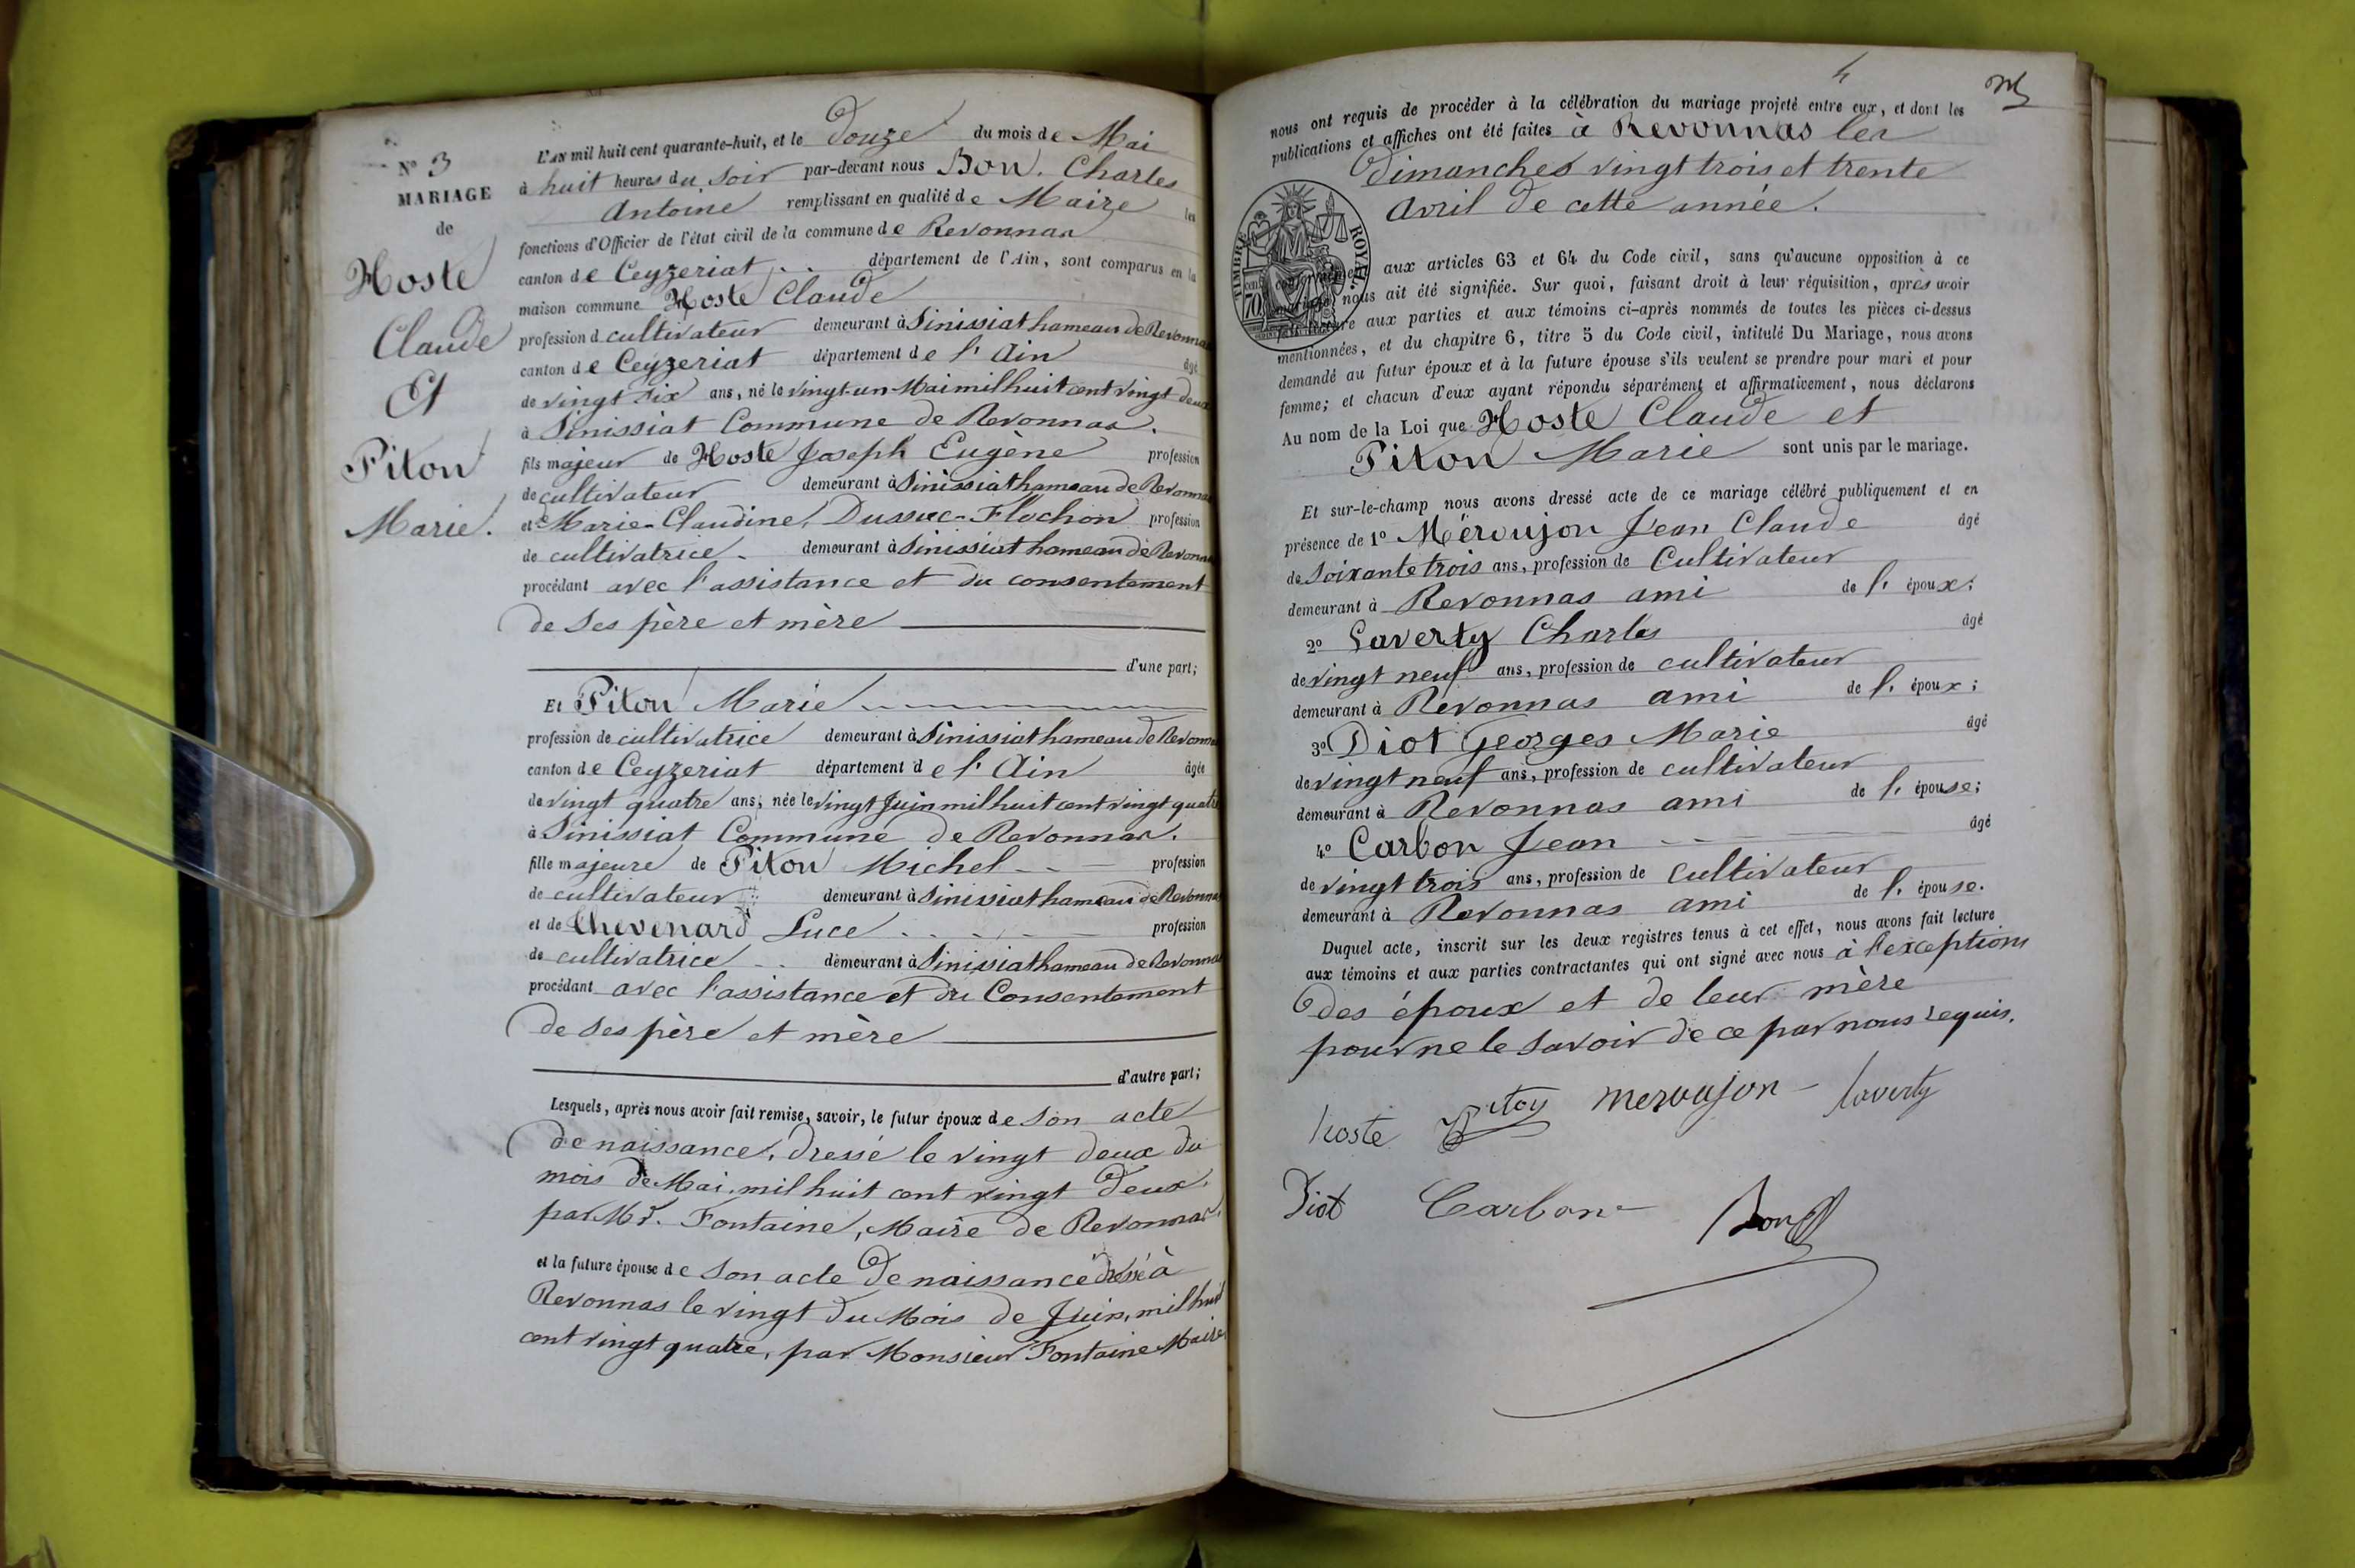 N° 3
MARIAGE
de
Hoste
Claude
Et
Piton
Marie.
L'AN mil huit cent quarante-huit, et le Douze du mois de Mai
à huit heures du soir par-devant nous Bon. Charles
Antoine remplissant en qualité de Maire les
fonctions d'Officier de l'état civil de la commune de Revonnas
canton de Ceyzeriat département de l'Ain, sont comparus en la
maison commune Hoste Claude
profession d cultivateur demeurant à Sinissiat hameau de Revonnas
canton de Ceyzeriat département de l'Ain âgé
de vingt six ans, né le vingt-un Mai mil huit cent vingt deux
à Sinissiat Commune de Revonnas.
fils majeur de Hoste Joseph Eugène profession
de cultivateur demeurant à Sinissiat hameau de Revonnas
et de Marie-Claudine, Dussuc-Flochon profession
de cultivatrice demeurant à Sinissiat hameau de Revonnas
procédant avec l'assistance et du consentement
de ses père et mère
d'une part;
Et Piton Marie
profession de cultivatrice demeurant à Sinissiat hameau de Revonnas
canton de Ceyzeriat département de l'Ain âgée
de vingt quatre ans, née le vingt Juin mil huit cent vingt quatre
à Sinissiat Commune de Revonnas.
fille majeure de Piton Michel profession
de cultivateur demeurant à Sinissiat hameau de Revonnas
et de Chevenard Luce profession
de cultivatrice demeurant à Sinissiat hameau de Revonnas
procédant avec l'assistance et du Consentement
de ses père et mère
d'autre part;
Lesquels, après nous avoir fait remise, savoir, le futur époux de son acte
de naissance, dressé le vingt deux du
mois de Mai mil huit cent vingt deux,
par Mr. Fontaine, Maire de Revonnas,
et la future épouse de son acte de naissance dressé à
Revonnas le vingt du Mois de Juin, mil huit
cent vingt quatre, par Monsieur Fontaine Maire
4
nous ont requis de procéder à la célébration du mariage projeté entre eux, et dont les
publications et affiches ont été faites à Revonnas les
dimanches vingt trois et trente
Avril de cette année.
TIMBRE ROYAL.
70
conformément aux articles 63 et 64 du Code civil, sans qu'aucune opposition à ce
mariage nous ait été signifiée. Sur quoi, faisant droit à leur réquisition, après avoir
fait lecture aux parties et aux témoins ci-après nommés de toutes les pièces ci-dessus
mentionnées, et du chapitre 6, titre 5 du Code civil, intitulé Du Mariage, nous avons
demandé au futur époux et à la future épouse s'ils veulent se prendre pour mari et pour
femme; et chacun d'eux ayant répondu séparément et affirmativement, nous déclarons
Au nom de la Loi que Hoste Claude et
Piton Marie sont unis par le mariage.
Et sur-le-champ nous avons dressé acte de ce mariage célébré publiquement et en
présence de 1° Méroujon Jean Claude âgé
de soixante trois ans, profession de Cultivateur
demeurant à Revonnas ami de l'époux;
2° Laverty Charles âgé
de vingt neuf ans, profession de cultivateur
demeurant à Revonnas ami de l'époux;
3° Diot Georges Marie âgé
de vingt neuf ans, profession de cultivateur
demeurant à Revonnas ami de l'épouse;
4° Carbon Jean âgé
de vingt trois ans, profession de Cultivateur
demeurant à Revonnas ami de l'épouse.
Duquel acte, inscrit sur les deux registres tenus à cet effet, nous avons fait lecture
aux témoins et aux parties contractantes qui ont signé avec nous à l'exceptions
des époux et de leur mère
pour ne le savoir de ce par nous requis.
hoste Pitoy meroujon laverty
Diot Carbon Bon